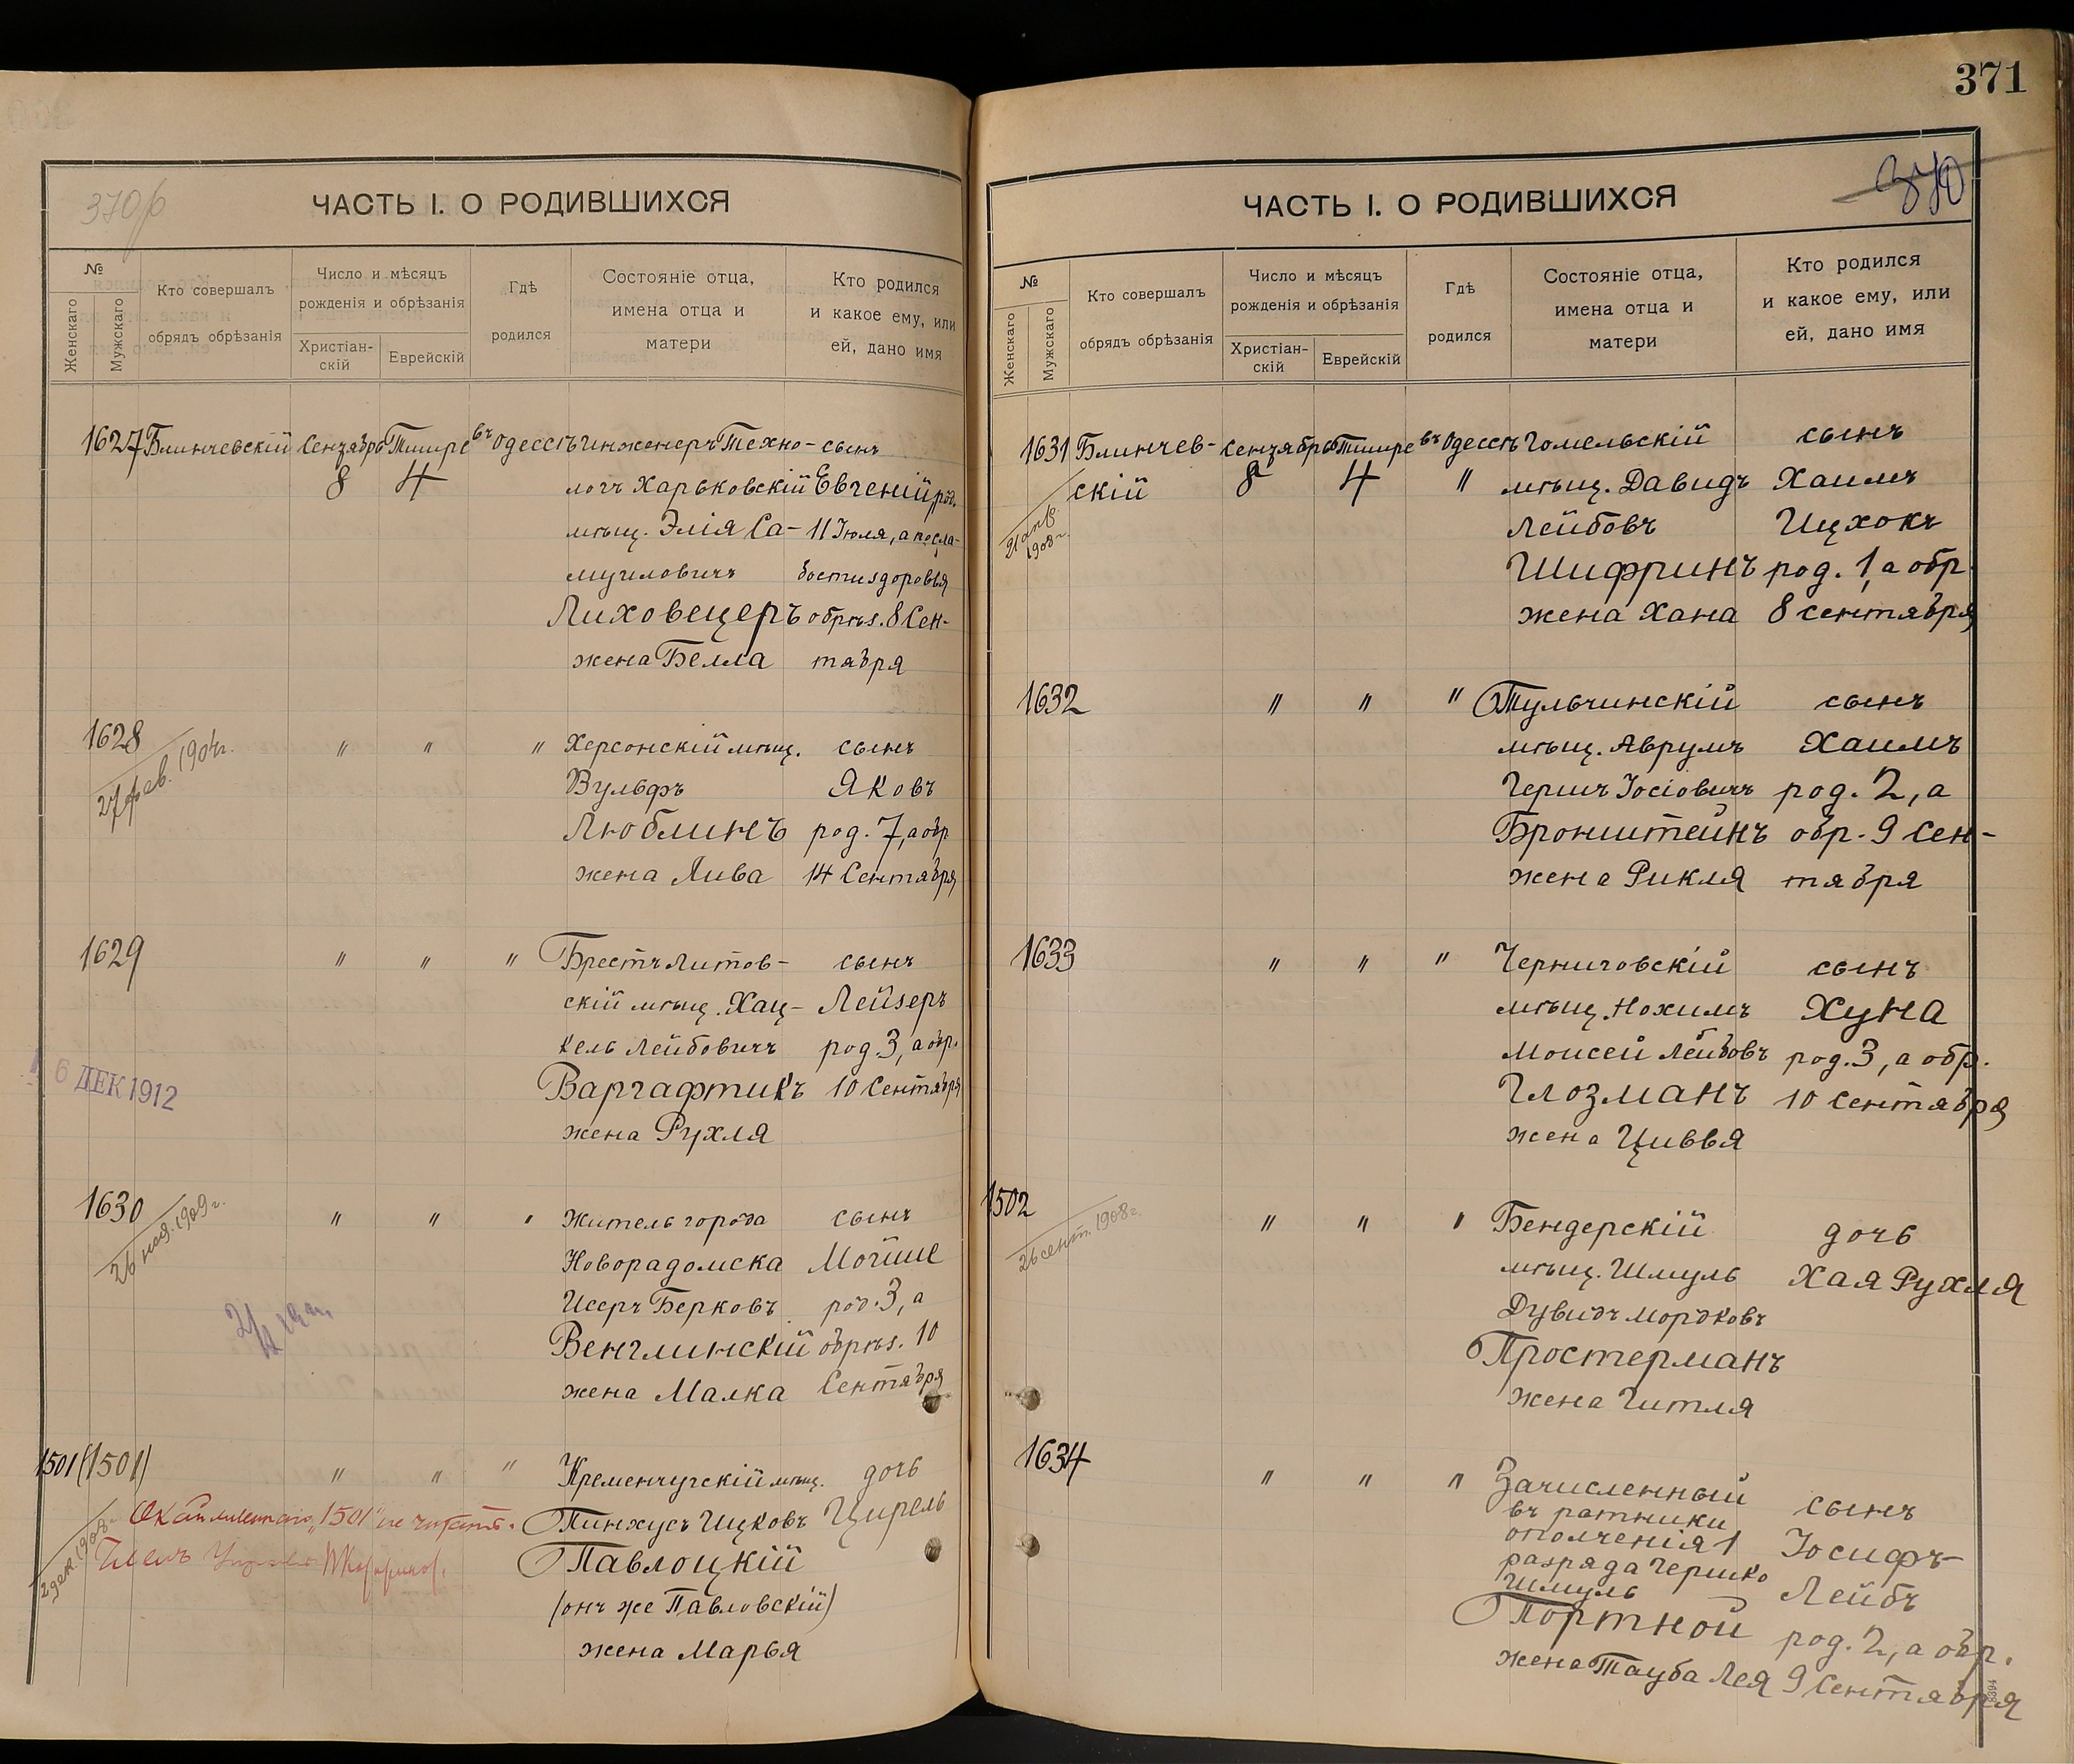 370б
ЧАСТЬ I. О РОДИВШИХСЯ
№
Женскаго
Мужскаго
Кто совершалъ
обрядъ обрѣзанія
Число и мѣсяцъ
рожденія и обрѣзанія
Христіан-
скій
Еврейскій
Гдѣ
родился
Состояніе отца,
имена отца и
матери
Кто родился
и какое ему, или
ей, дано имя
1627 Блинчевскій Сентябрь Тишре въ Одессѣ Инженеръ Техно- сынъ
8 4 логъ Харьковскій Евгеній род.
мѣщ. Элія Са- 11 Іюля, а по сла-
муиловичъ бости здоровья
Лиховецеръ обрѣз. 8 Сен-
жена Белла тября
1628 " " " Херсонскій мѣщ. сынъ
27 фев. 1904 г.
Вульфъ Яковъ
Люблинъ род. 7, а обр
жена Лива 14 Сентября
1629 " " " Брестъ Литов- сынъ
скій мѣщ. Хац- Лейзеръ
кель Лейбовичъ род. 3, а обр.
6 ДЕК 1912
Варгафтикъ 10 Сентября
жена Рухля
1630 " " " Житель города сынъ
26 ноя. 1909 г.
Новорадомска Мойше
Исеръ Берковъ род. 3, а
Венглинскій обрѣз. 10
жена Малка Сентября
1501 (1501) " " " Кременчугскій мѣщ. дочь
"1501" не читать.
Пинхусъ Ицковъ Цирель
Членъ
Павлоцкій
(онъ же Павловскій)
жена Марья
371
370
ЧАСТЬ I. О РОДИВШИХСЯ
№
Женскаго
Мужскаго
Кто совершалъ
обрядъ обрѣзанія
Число и мѣсяцъ
рожденія и обрѣзанія
Христіан-
скій
Еврейскій
Гдѣ
родился
Состояніе отца,
имена отца и
матери
Кто родился
и какое ему, или
ей, дано имя
1631 Блинчев- Сентябрь Тишре въ Одессѣ Гомельскій сынъ
скій 8 4 " мѣщ. Давидъ Хаимъ
1908 г.
Лейбовъ Ицхокъ
Шифринъ род. 1, а обр.
жена Хана 8 Сентября
1632 " " " Тульчинскій сынъ
мѣщ. Аврумъ Хаимъ
Гершъ Іосіовичъ род. 2, а
Бронштейнъ обр. 9 Сен-
жена Рикля тября
1633 " " " Черниговскій сынъ
мѣщ. Нохимъ Хуна
Моисей Лейбовъ род. 3, а обр.
Глозманъ 10 Сентября
жена Циввя
1502 " " " Бендерскій дочь
26 сент. 1908 г.
мѣщ. Шмуль Хая Рухля
Дувидъ Мордковъ
Простерманъ
жена Гитля
1634 " " " Зачисленный сынъ
въ ратники
ополченія 1 Іосифъ-
разряда Гершко
Шмуль Лейбъ
Портной род. 2, а обр.
жена Тауба Лея 9 Сентября
8394